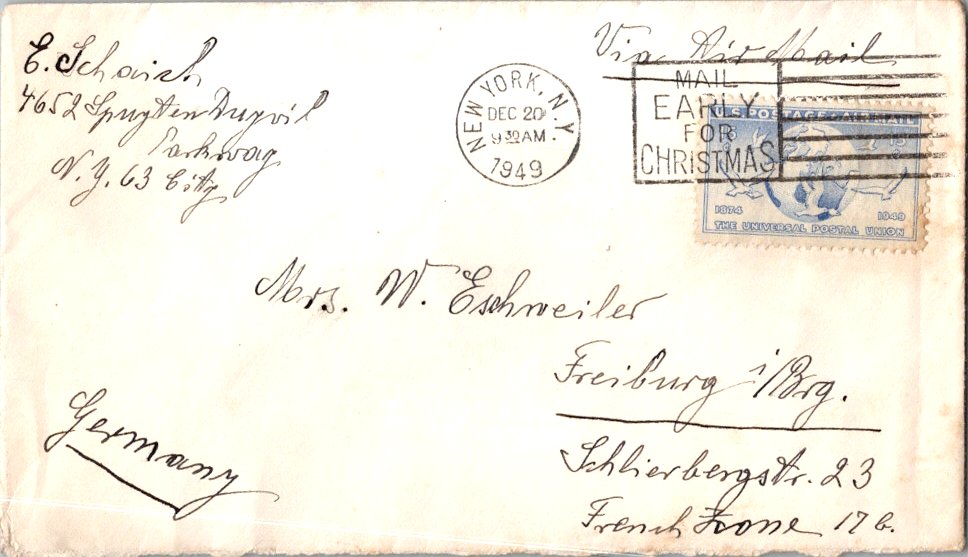 E. Schaich
4652 Spuyten Duyvil
Parkway
N.Y. 63 City
Via Air Mail
NEW YORK, N.Y.
DEC 20
9 30 AM
1949
MAIL
EARLY
FOR
CHRISTMAS
U.S. POSTAGE AIR MAIL
15
1874 1949
THE UNIVERSAL POSTAL UNION
Mrs. W. Eschweiler
Freiburg i/Brg.
Schlierbergstr. 23
French Zone 17 b.
Germany